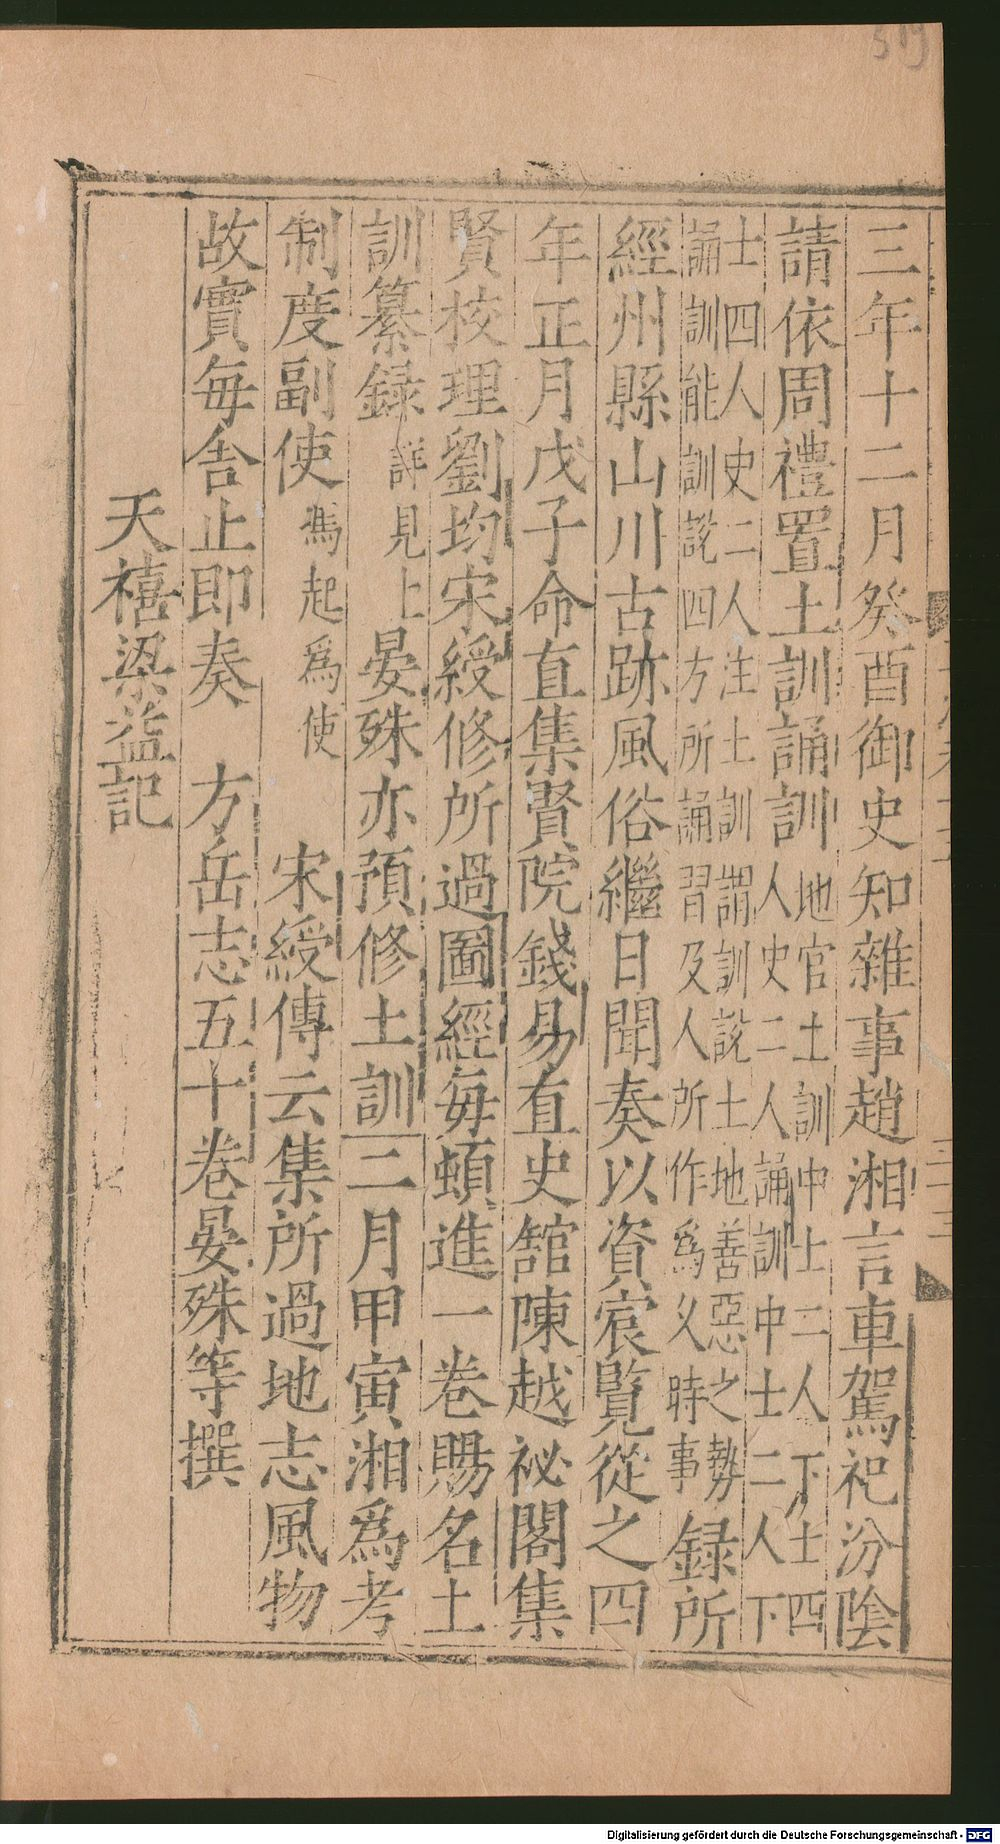 519
三年十二月癸酉御史知雜事趙湘言車駕祀汾陰
請依周禮置土訓誦訓
地官土訓中士二人下士四
人史二人誦訓中士二人下
士四人史二人注土訓謂訓說土地善惡之勢
誦訓能訓說四方所誦習及人所作爲乆時事
録所
經州縣山川古跡風俗繼日聞奏以資宸覽從之四
年正月戊子命直集賢院錢易直史舘陳越祕閣集
賢校理劉均宋綬修所過圖經每頓進一卷賜名土
訓纂録詳見上晏殊亦預修土訓二月甲寅湘爲考
制度副使馮起爲使 宋綬傳云集所過地志風物
故實每舍止即奏 方岳志五十卷晏殊等撰
天禧梁益記
Digitalisierung gefördert durch die Deutsche Forschungsgemeinschaft - DFG